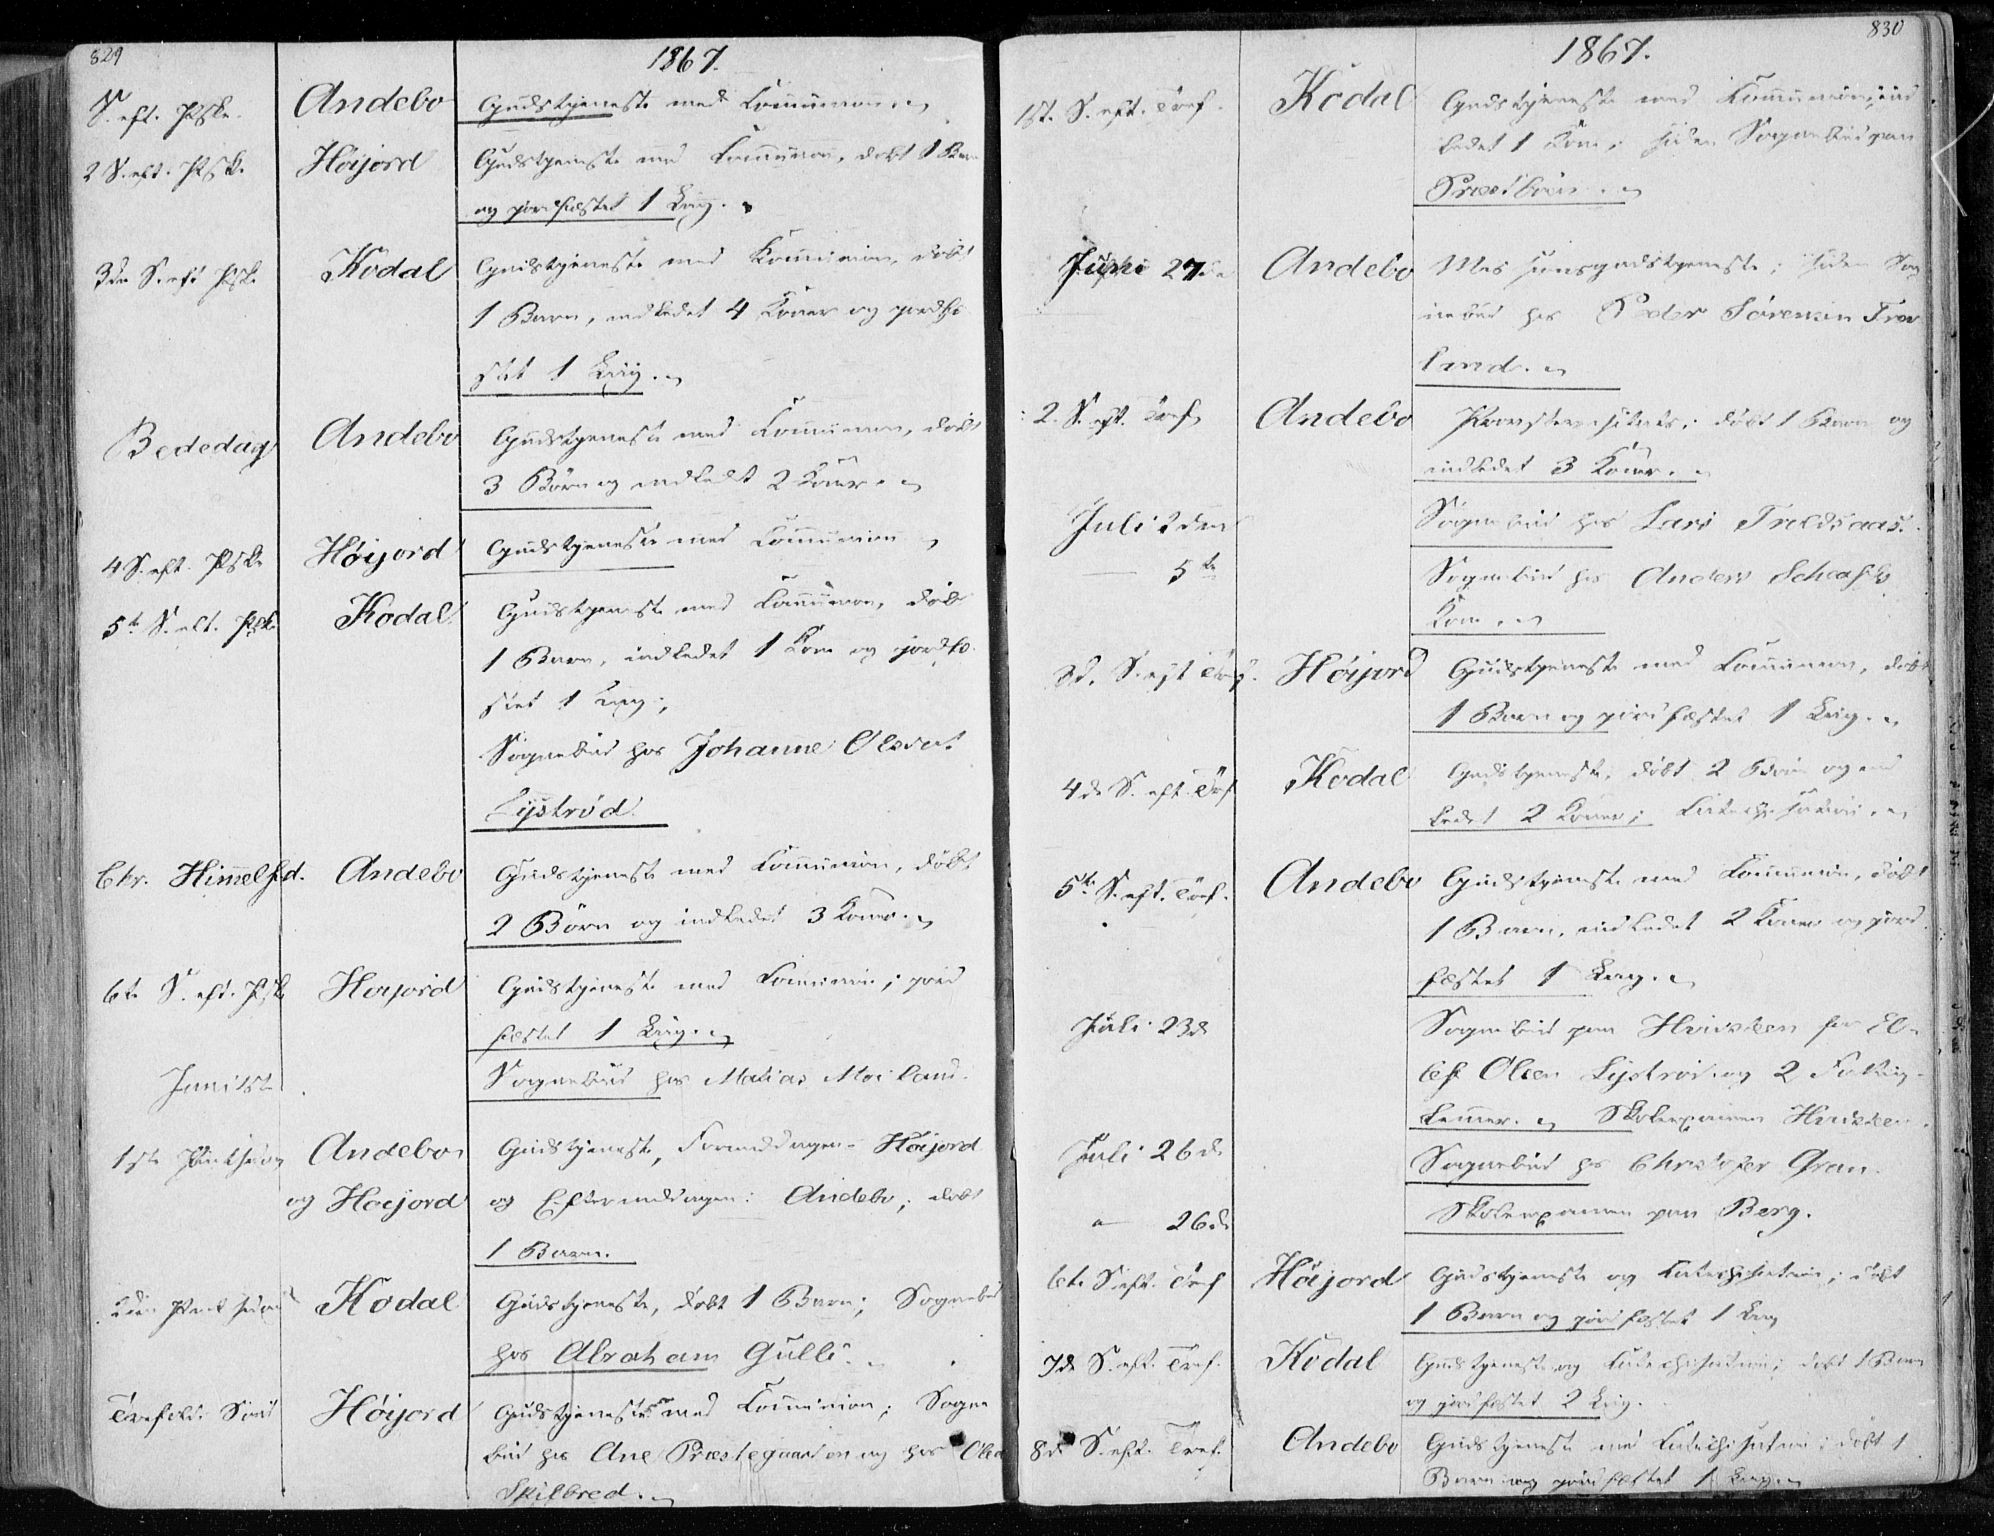 829
1867.
S. eft. Pske. Andebo Gudstjeneste med Communion.
2 S. eft. Pske. Høijord Gudstjeneste med Communion, døbt 1 Barn
og jordfæstet 1 Liig.
3die S. eft Pske Kodal Gudstjeneste med Kommunion, døbt
1 Barn, indledet 4 Koner og jordfæ
stet 1 Liig.
Bededag Andebo Gudstjeneste med Communion, døbt
3 Børn og indledt 2 Koner.
4 S. eft. Pske Høijord Gudstjeneste med Communion
5te S. eft. Pske Kodal Gudstjeneste med Communion, døbt
1 Barn, indledet 1 Kone og jordfæ
stet 1 Liig;
Sognebud hos Johanne Olsdat
Lystrød.
Chr. Himmelfd. Andebo Gudstjeneste med Communion, døbt
2 Børn og indledet 3 Koner.
6te S. eft. Pske Høijord Gudstjeneste med Communion; jord
fæstet 1 Liig.
Juni 1ste Sognebud hos Matias Moiland.
1ste Pintsedag Andebo Gudstjeneste, Formiddagen Høijord
og Høijord og Eftermiddagen: Andebo; døbt
1 Barn.
2den Pintsedag Kodal Gudstjeneste, døbt 1 Barn; Sognebud
hos Abraham Gulli.
Trefold. Sønd Høijord Gudstjeneste med Communion; Sogne
bud hos Ane Præstegaarden og hos Olea
Spilbred.
830
1867.
1ste S. eft. Tref. Kodal Gudstjeneste med Kommunion, ind
ledet 1 Kone; siden Sognebud paa
Præstbøen.
Juni 27de Andebo Missionsgudstjeneste; siden Sog
nebud hos Peder Sørensen Trev
land.
2. S. eft. Tref. Andebo Provstevisitats; døbt 1 Barn og
indledet 3 Koner.
Juli 2den Sognebud hos Lars Trældsaas.
— 5te Sognebud hos Anders
Kone.
3d. S. eft Tref. Høijord Gudstjeneste med Communion, døbt
1 Barn og jordfæstet 1 Liig.
4de S. eft. Tref Kodal Gudstjeneste, døbt 2 Børn og ind
ledet 2 Koner; Katechisation.
5te S. eft. Tref. Andebo Gudstjeneste med Communion, døbt
1 Barn, indledet 2 Koner og jord
fæstet 1 Liig.
Juli 23de Sognebud paa Hvidsteen for El-
lef Olsen Lystrød og 2 Fattig-
lemmer. Skoleexamen Hvidsteen.
Juli 26de Sognebud hos Christofer Gran.
— 26de Skoleexamen paa Berg.
6te S. eft. Tref Høijord Gudstjeneste og Katechisation; døbt
1 Barn og jordfæstet 1 Liig
7de S. eft. Tref. Kodal Gudstjeneste og Katechisation; døbt 1 Barn
og jordfæstet 2 Liig.
8de S. eft. Tref. Andebo Gudstjeneste med Katechisation; døbt 1
Barn og jordfæstet 1 Liig.